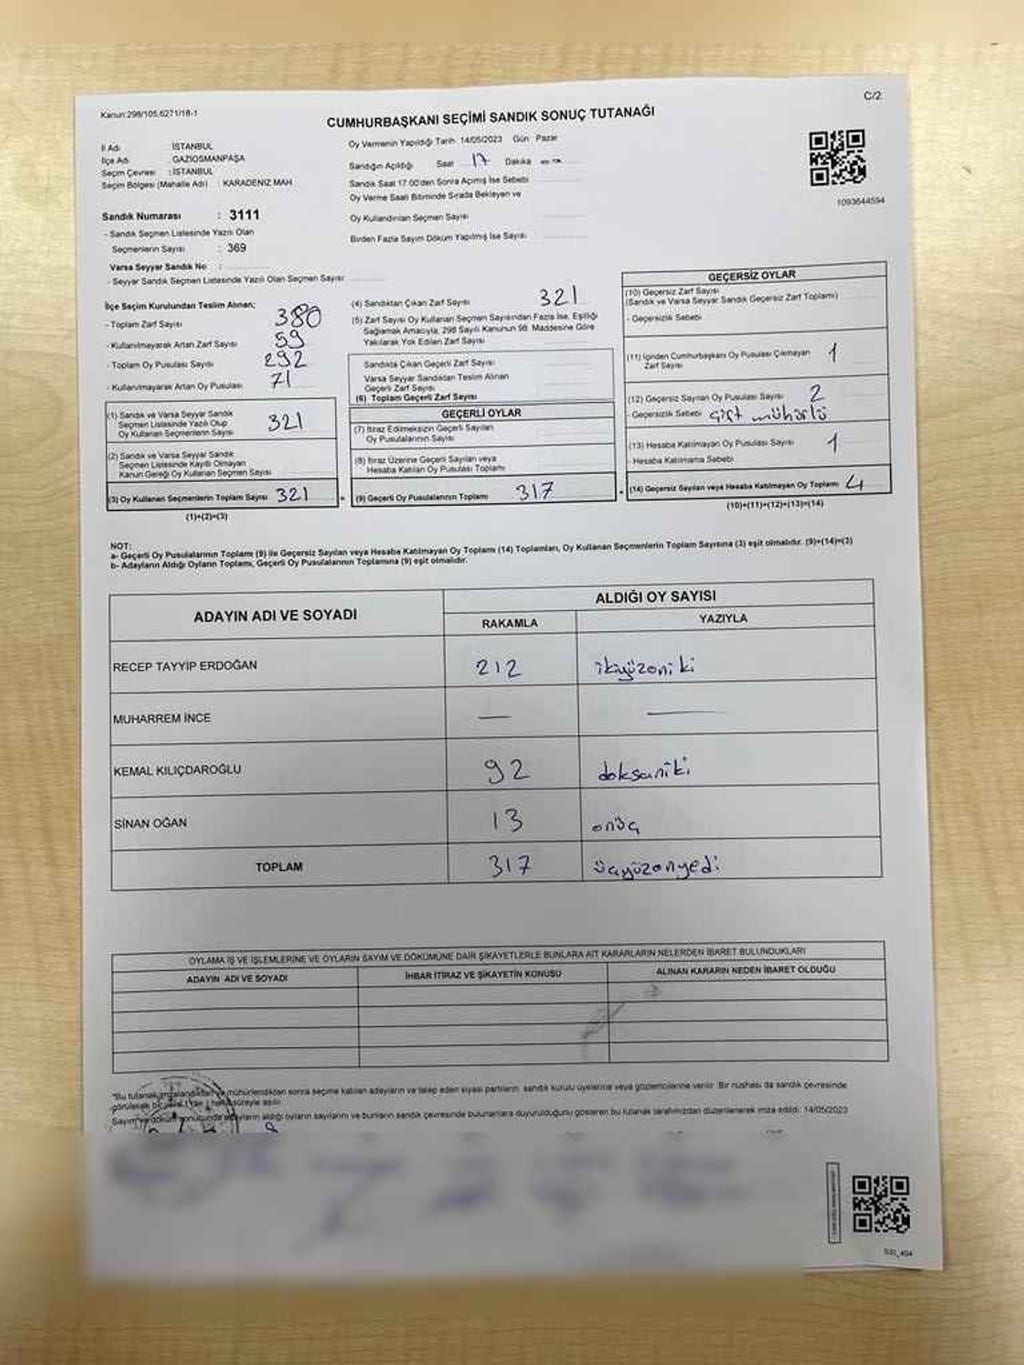 Kanun:298/105,6271/18-1
C/2
CUMHURBAŞKANI SEÇİMİ SANDIK SONUÇ TUTANAĞI
İl Adı : İSTANBUL
İlçe Adı : GAZİOSMANPAŞA
Seçim Çevresi : İSTANBUL
Seçim Bölgesi (Mahalle Adı) : KARADENİZ MAH
Oy Vermenin Yapıldığı Tarih: 14/05/2023 Gün : Pazar
Sandığın Açıldığı Saat 17 Dakika
Sandık Saat 17:00'den Sonra Açılmış İse Sebebi
Oy Verme Saati Bitiminde Sırada Bekleyen ve
Oy Kullandırılan Seçmen Sayısı
Birden Fazla Sayım Döküm Yapılmış İse Sayısı
1093644594
Sandık Numarası : 3111
- Sandık Seçmen Listesinde Yazılı Olan
Seçmenlerin Sayısı : 369
Varsa Seyyar Sandık No :
- Seyyar Sandık Seçmen Listesinde Yazılı Olan Seçmen Sayısı
İlçe Seçim Kurulundan Teslim Alınan;
- Toplam Zarf Sayısı 380
- Kullanılmayarak Artan Zarf Sayısı 59
- Toplam Oy Pusulası Sayısı 292
- Kullanılmayarak Artan Oy Pusulası 71
(1) Sandık ve Varsa Seyyar Sandık
Seçmen Listesinde Yazılı Olup
Oy Kullanan Seçmenlerin Sayısı 321
(2) Sandık ve Varsa Seyyar Sandık
Seçmen Listesinde Kaydı Olmayan
Kanun Gereği Oy Kullanan Seçmen Sayısı
(3) Oy Kullanan Seçmenlerin Toplam Sayısı 321
(1)+(2)=(3)
(4) Sandıktan Çıkan Zarf Sayısı 321
(5) Zarf Sayısı Oy Kullanan Seçmen Sayısından Fazla İse, Eşitliği
Sağlamak Amacıyla, 298 Sayılı Kanunun 98. Maddesine Göre
Yakılarak Yok Edilen Zarf Sayısı
Sandıkta Çıkan Geçerli Zarf Sayısı
Varsa Seyyar Sandıktan Teslim Alınan
Geçerli Zarf Sayısı
(6) Toplam Geçerli Zarf Sayısı
GEÇERLİ OYLAR
(7) İtiraz Edilmeksizin Geçerli Sayılan
Oy Pusulalarının Sayısı
(8) İtiraz Üzerine Geçerli Sayılan veya
Hesaba Katılan Oy Pusulası Toplamı
(9) Geçerli Oy Pusulalarının Toplamı 317
GEÇERSİZ OYLAR
(10) Geçersiz Zarf Sayısı
(Sandık ve Varsa Seyyar Sandık Geçersiz Zarf Toplamı)
- Geçersizlik Sebebi
(11) İçinden Cumhurbaşkanı Oy Pusulası Çıkmayan
Zarf Sayısı 1
(12) Geçersiz Sayılan Oy Pusulası Sayısı 2
- Geçersizlik Sebebi çift mühürlü
(13) Hesaba Katılmayan Oy Pusulası Sayısı 1
- Hesaba Katılmama Sebebi
(14) Geçersiz Sayılan veya Hesaba Katılmayan Oy Toplamı 4
(10)+(11)+(12)+(13)=(14)
NOT:
a- Geçerli Oy Pusulalarının Toplamı (9) ile Geçersiz Sayılan veya Hesaba Katılmayan Oy Toplamı (14) Toplamları, Oy Kullanan Seçmenlerin Toplam Sayısına (3) eşit olmalıdır. (9)+(14)=(3)
b- Adayların Aldığı Oyların Toplamı, Geçerli Oy Pusulalarının Toplamına (9) eşit olmalıdır.
ADAYIN ADI VE SOYADI
ALDIĞI OY SAYISI
RAKAMLA YAZIYLA
RECEP TAYYİP ERDOĞAN 212 ikiyüzoniki
MUHARREM İNCE — —
KEMAL KILIÇDAROĞLU 92 doksaniki
SİNAN OĞAN 13 onüç
TOPLAM 317 üçyüzonyedi
OYLAMA İŞ VE İŞLEMLERİNE VE OYLARIN SAYIM VE DÖKÜMÜNE DAİR ŞİKAYETLERLE BUNLARA AİT KARARLARIN NELERDEN İBARET BULUNDUKLARI
ADAYIN ADI VE SOYADI İHBAR İTİRAZ VE ŞİKAYETİN KONUSU ALINAN KARARIN NEDEN İBARET OLDUĞU
"Bu tutanak imzalandıktan ve mühürlendikten sonra seçime katılan adayların ve talep eden siyasi partilerin sandık kurulu üyelerine veya gözlemcilerine verilir. Bir nüshası da sandık çevresinde
görülecek bir yere süreyle asılır.
Sayım ve döküm sonucunda adayların aldığı oyların sayılarını ve bunların sandık çevresinde bulunanlara duyurulduğunu gösteren bu tutanak tarafımızdan düzenlenerek imza edildi. 14/05/2023